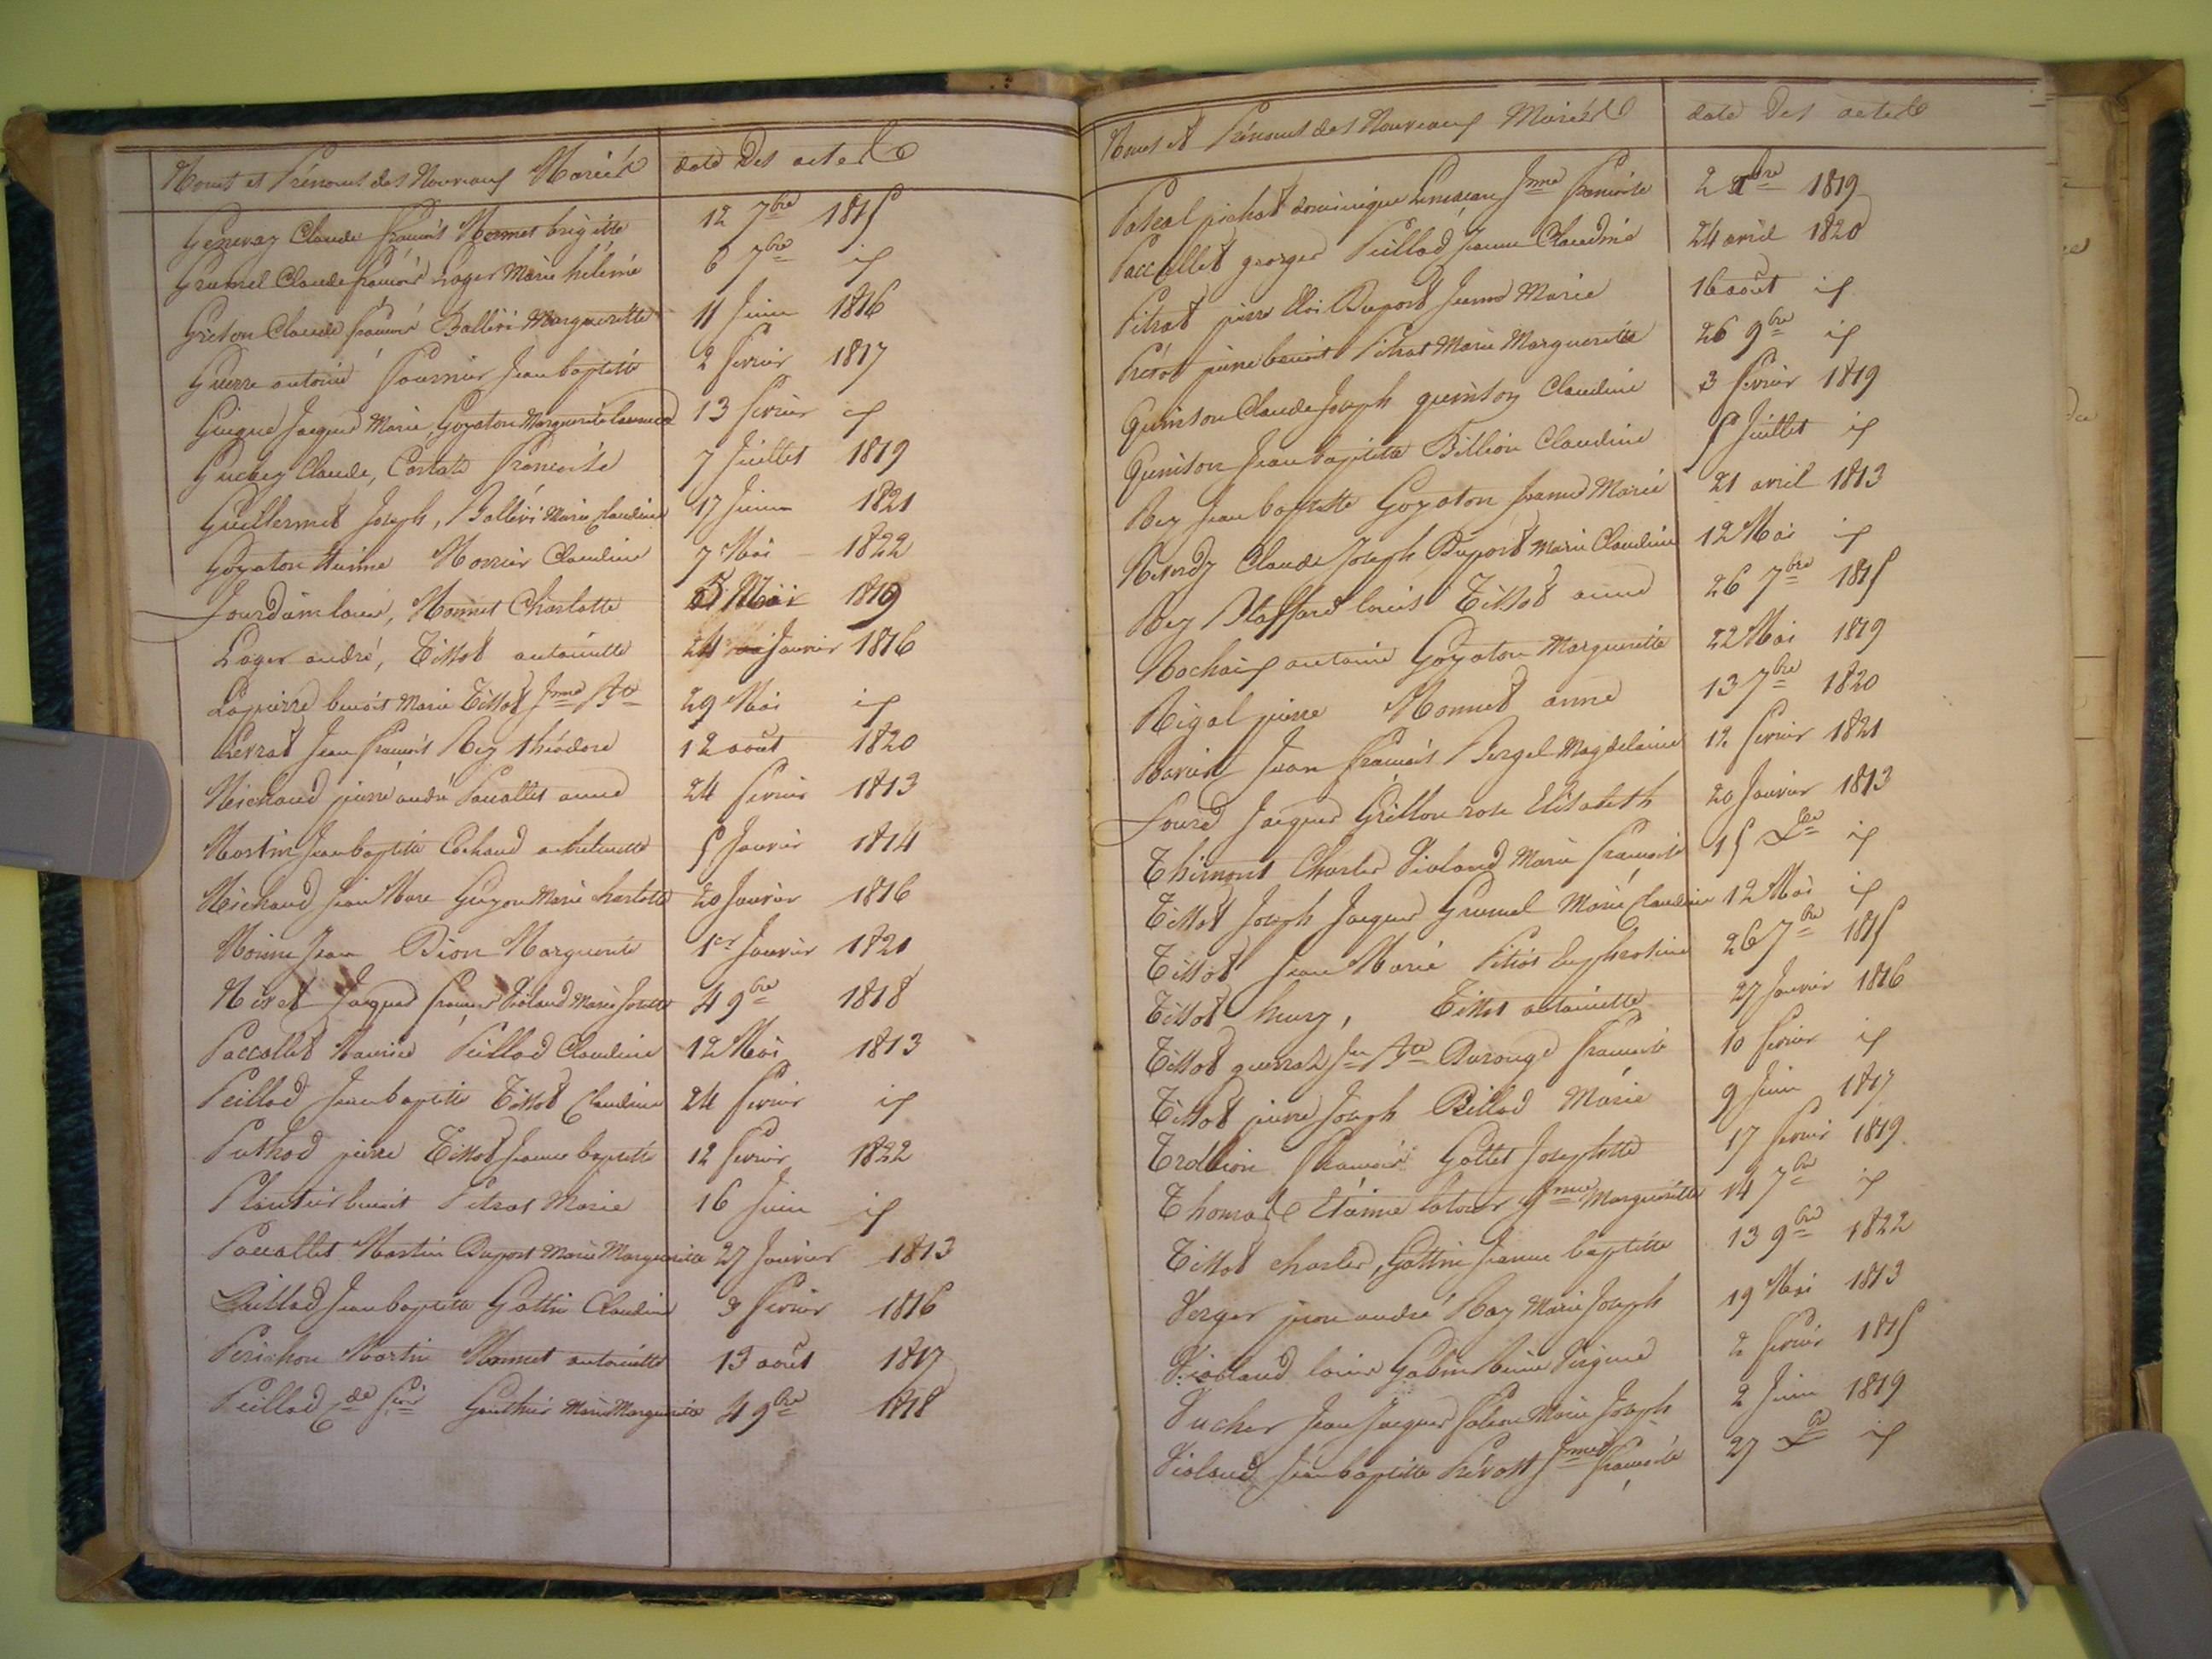 Noms et Prénoms des Nouveaux Mariés date Des actes
Genevay Claude françois Monnet brigitte 12 7bre 1815
Grumel Claude françois Loger Marie hélène 6 7bre id
Griton Claude françois Balleri Margueritte 11 Juin 1816
Guerre antoine Fournier Jean baptiste 2 fevrier 1817
Guigue Jacques Marie, Goyaton Marguerite 13 fevrier id
Guebey Claude, françoise 7 Juillet 1819
Guillermet Joseph, Balleri Marie Claudine 17 Juin 1821
Goyaton Claudine 7 Mai 1822
Jourdain louis, Monnet Charlotte Mai 1819
Loger andré, Tissot antoinette 24 Janvier 1816
Lapierre benoit Marie Tissot Jnne Bte 29 Mai id
Perrat Jean françois Rey théodore 12 août 1820
Michaud pierre andré Paccallet anne 24 fevrier 1813
Martin Jean baptiste Cochaud 5 Janvier 1814
Michaud Jean Marc Guyon Marie charlotte 20 Janvier 1816
Moine Jean Dion Marguerite 1er Janvier 1821
Jacques françois Violand Marie Josette 4 9bre 1818
Paccallet Maurice Peillod Claudine 12 Mai 1813
Peillod Jean baptiste Tissot Claudine 24 fevrier id
Puthod pierre Tissot Jeanne baptiste 12 fevrier 1822
Plantier benoit Pitrat Marie 16 Juin id
Paccallet Martin Duport Marie Marguerite 27 Janvier 1813
Peillod Jean baptiste Gottin Claudine 3 fevrier 1816
Perichon Martin Monnet antoinette 13 août 1817
Peillod Cde Gauthier Marie Marguerite 4 9bre 1818
Noms et Prénoms des Nouveaux Mariés date Des actes
pichot dominique Jnne françoise 2 1819
Paccallet georges Peillod Jeanne Claudine 24 avril 1820
Pitrat pierre Duport Jeanne Marie 16 août id
Prévot pierre benoit Pitrat Marie Marguerite 26 9bre id
Quinson Claude Joseph quinson Claudine 3 fevrier 1819
Quinson Jean baptiste Billion Claudine 5 Juillet id
Rey Jean baptiste Goyaton Jeanne Marie 21 avril 1813
Claude Joseph Duport Marie Claudine 12 Mai id
Rey louis Tissot anne 26 7bre 1815
Rochaix antoine Goyaton Marguerite 22 Mai 1819
Rigal pierre Monnet anne 13 7bre 1820
Jean françois Bergel Magdelaine 12 fevrier 1821
Jacques Grillon rose Elisabeth 20 Janvier 1813
Thimont Charles Violand Marie françoise 15 Xbre id
Tissot Joseph Jacques Grumel Marie Claudine 12 Mai id
Tissot Jean Marie Euphrosine 26 7bre 1815
Tissot henry, Tissot antoinette 27 Janvier 1816
Tissot Jn Bte françoise 10 fevrier id
Tissot pierre Joseph Marie 9 Juin 1817
françois Gottet Josephette 17 fevrier 1819
Thomas Etienne latour Jnne Marguerite 14 7bre id
Tissot charles, Gottin Jeanne baptiste 13 9bre 1822
Verger andré Marie Joseph 19 Mai 1813
Violand louis 2 fevrier 1815
Vucher Jean Jacques Marie Joseph 2 Juin 1819
Violand Jean baptiste Prévost Jnne françoise 27 Xbre id